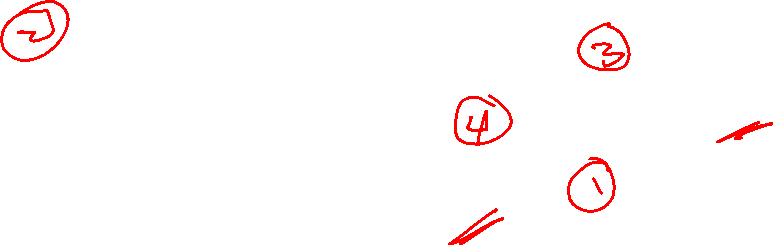 2
3
4
1